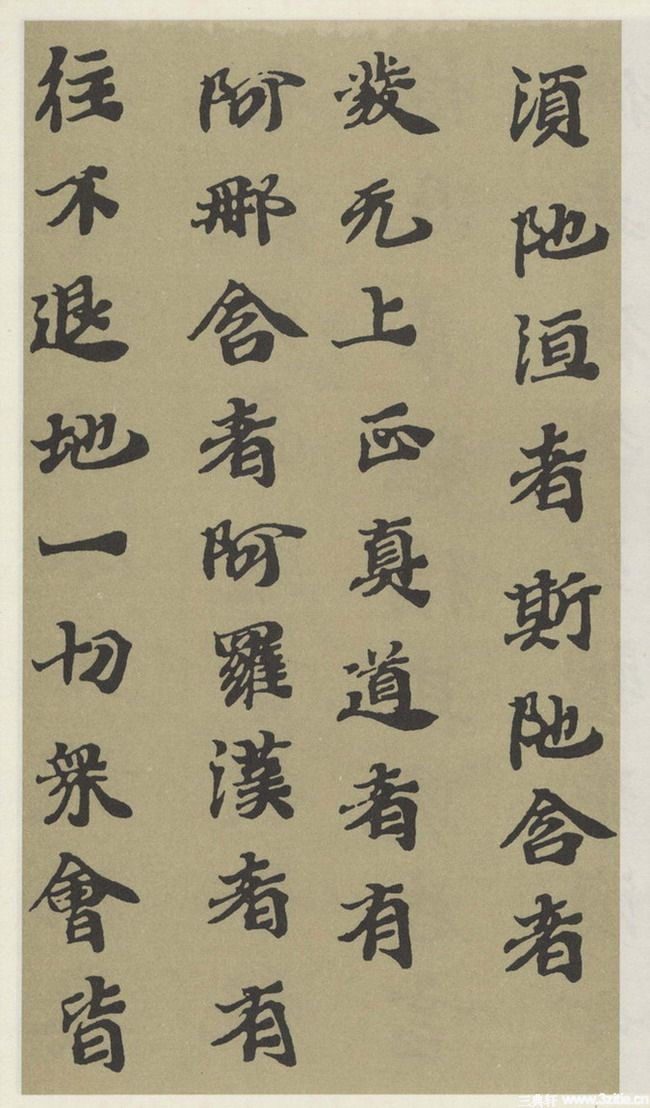 須陁洹者斯陁含者
發无上正真道者有
阿那含者阿羅漢者有
往不退地一切衆會皆
三典轩 www.3zitie.cn